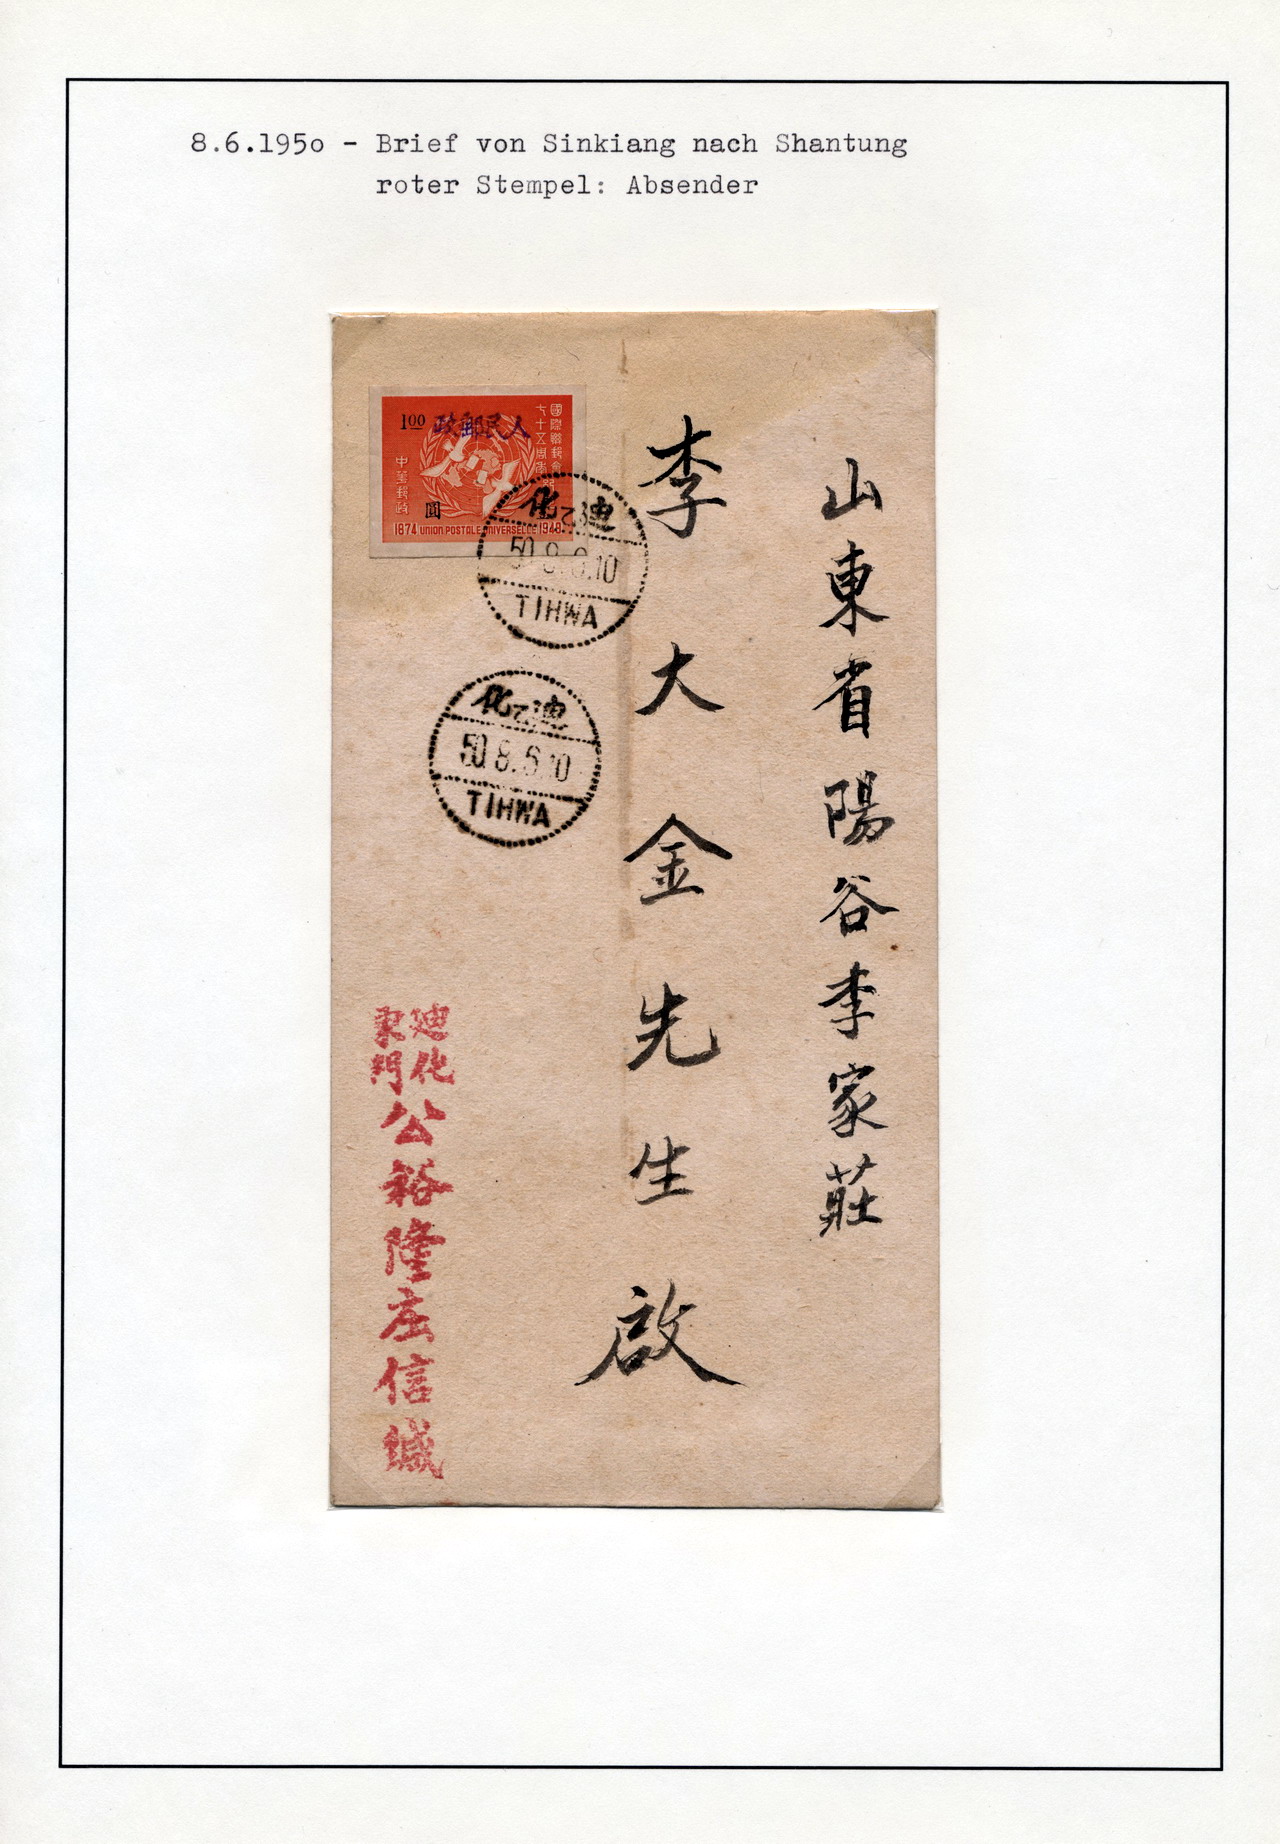 8.6.195o - Brief von Sinkiang nach Shantung
roter Stempel: Absender
山東省陽谷李家莊
李大金先生啟
國際聯郵會
七十五周年
1.00
人民郵政
中華郵政
圓
1874 UNION POSTALE UNIVERSELLE 1948
迪乙化
50.8.6.10
TIHWA
迪乙化
50.8.6.10
TIHWA
迪化
東門
公裕隆庄信緘